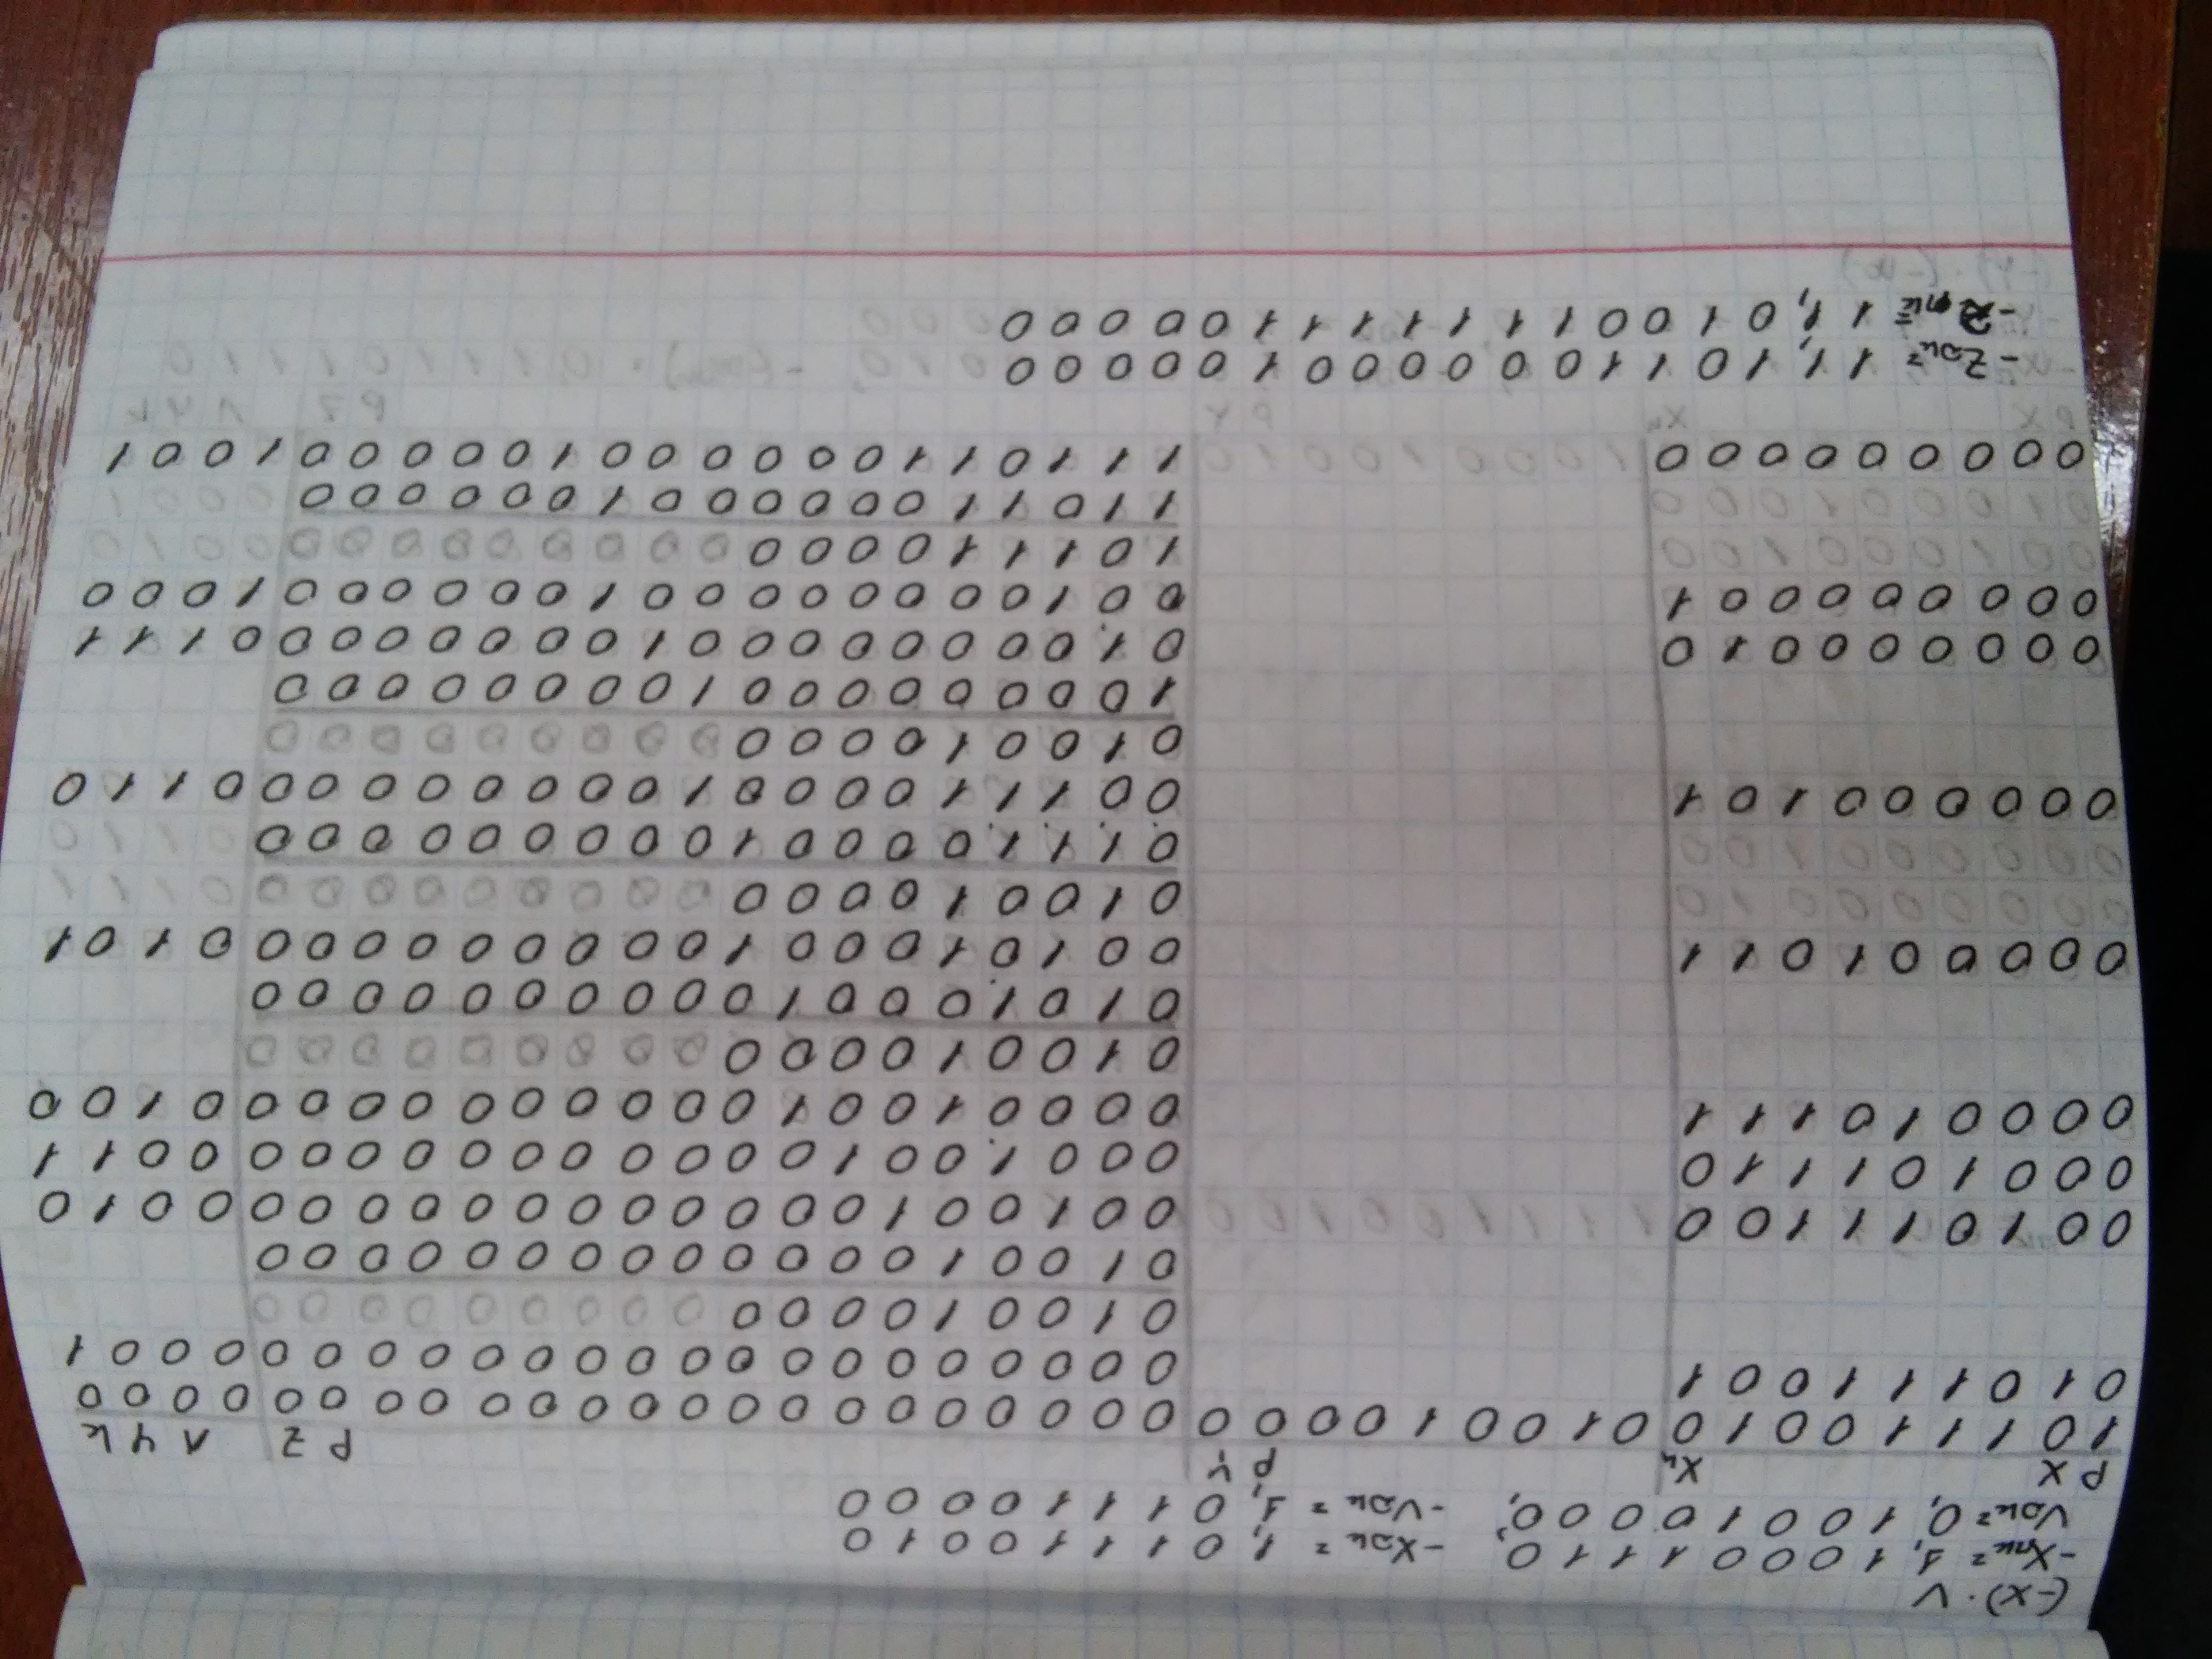 (-x)·V
-Xпк= 1,10001110, -Xдк = 1,01110010
Vдк= 0,10010000; -Vдк = 1,01110000
Р X Xн Р Y Р Z Л Ч К
101110010 010010000 000000000000000000 0000
010111001 000000000000000000 0001
010010000000000000
010010000000000000
001011100 001001000000000000 0010
000101110 000100100000000000 0011
000010111 000010010000000000 0100
010010000000000000
010100010000000000
000001011 001010001000000000 0101
010010000000000000
011100001000000000
000000101 001110000100000000 0110
010010000000000000
100000000100000000
000000010 010000000010000000 0111
000000001 001000000001000000 1000
101110000000000000
110110000001000000
000000000 111011000000100000 1001
-Zдк= 11,1011000000100000
-Zпк= 11,0100111111100000